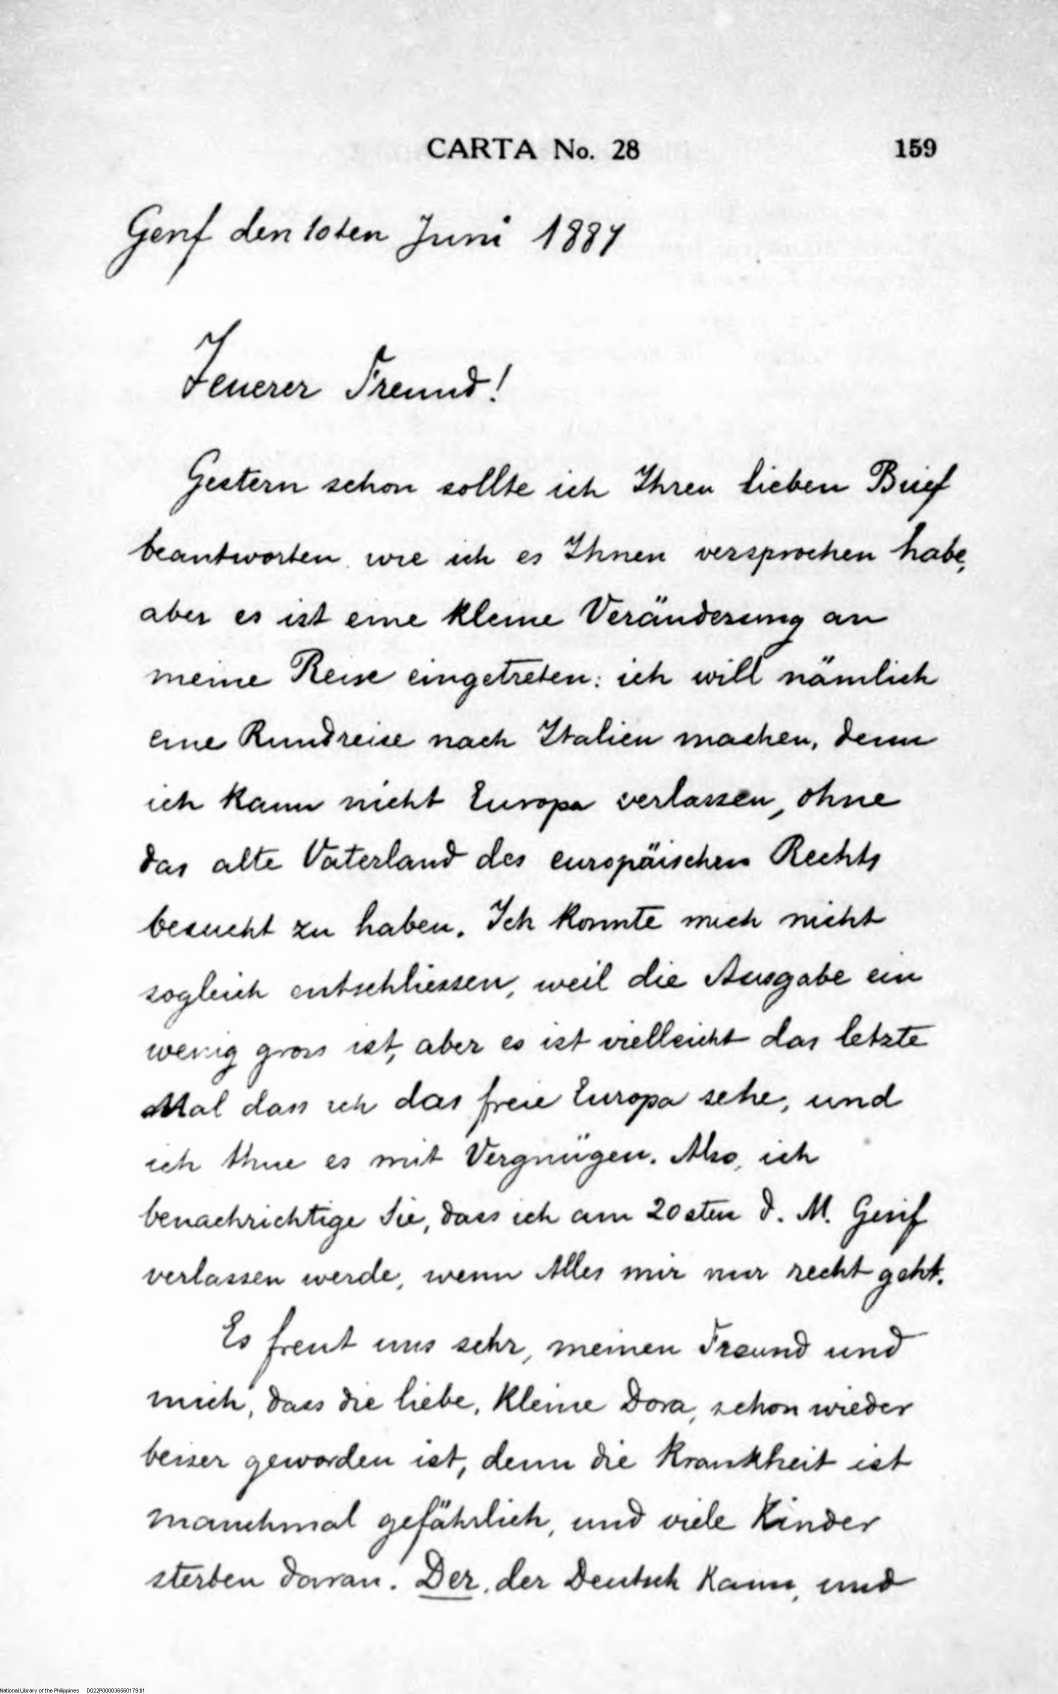 CARTA No. 28 159
Genf den 10ten Juni 1887
Teuerer Freund!
Gestern schon sollte ich Ihren lieben Brief
beantworten wie ich es Ihnen versprochen habe,
aber es ist eine kleine Veränderung an
meine Reise eingetreten: ich will nämlich
eine Rundreise nach Italien machen, denn
ich kann nicht Europa verlassen, ohne
das alte Vaterland des europäischen Rechts
besucht zu haben. Ich konnte mich nicht
sogleich entschliessen, weil die Ausgabe ein
wenig gross ist, aber es ist vielleicht das letzte
Mal dass ich das freie Europa sehe, und
ich thue es mit Vergnügen. Also, ich
benachrichtige Sie, dass ich am 20sten d. M. Genf
verlassen werde, wenn Alles mir nur recht geht.
Es freut uns sehr, meinen Freund und
mich, dass die liebe, kleine Dora, schon wieder
besser geworden ist, denn die Krankheit ist
manchmal gefährlich, und viele Kinder
sterben daran. Der, der Deutsch kann, und
National Library of the Philippines D022R000036560179.tif